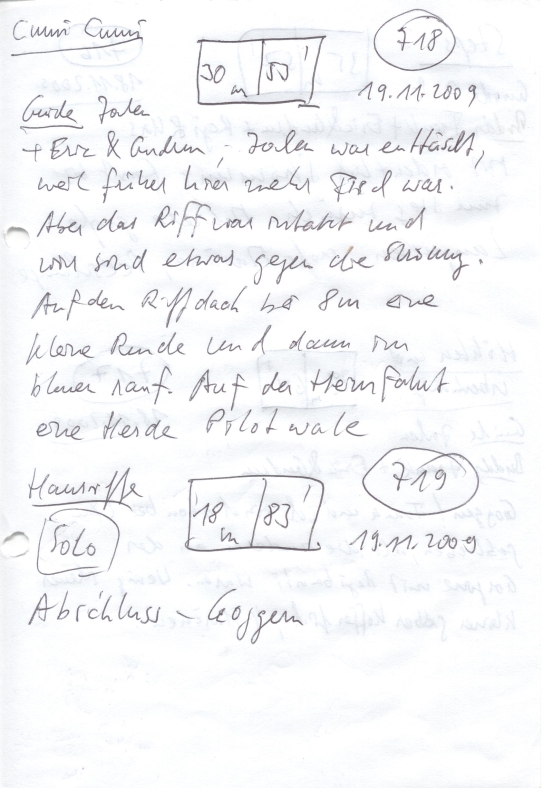 Cumi Cumi
718
30 m 53'
19.11.2009
Guide
+ Eric & , war enttäscht,
weil früher hier mehr Fisch war.
Aber das Riff war intakt und
wir sind etwas gegen die Strömung.
Auf dem Riffdach bei 8m eine
kleine Runde und dann im
blauen rauf. Auf der Heimfahrt
eine Herde Pilotwale
Hausriffe
719
18 m 83'
Solo
19.11.2009
Abschluss -